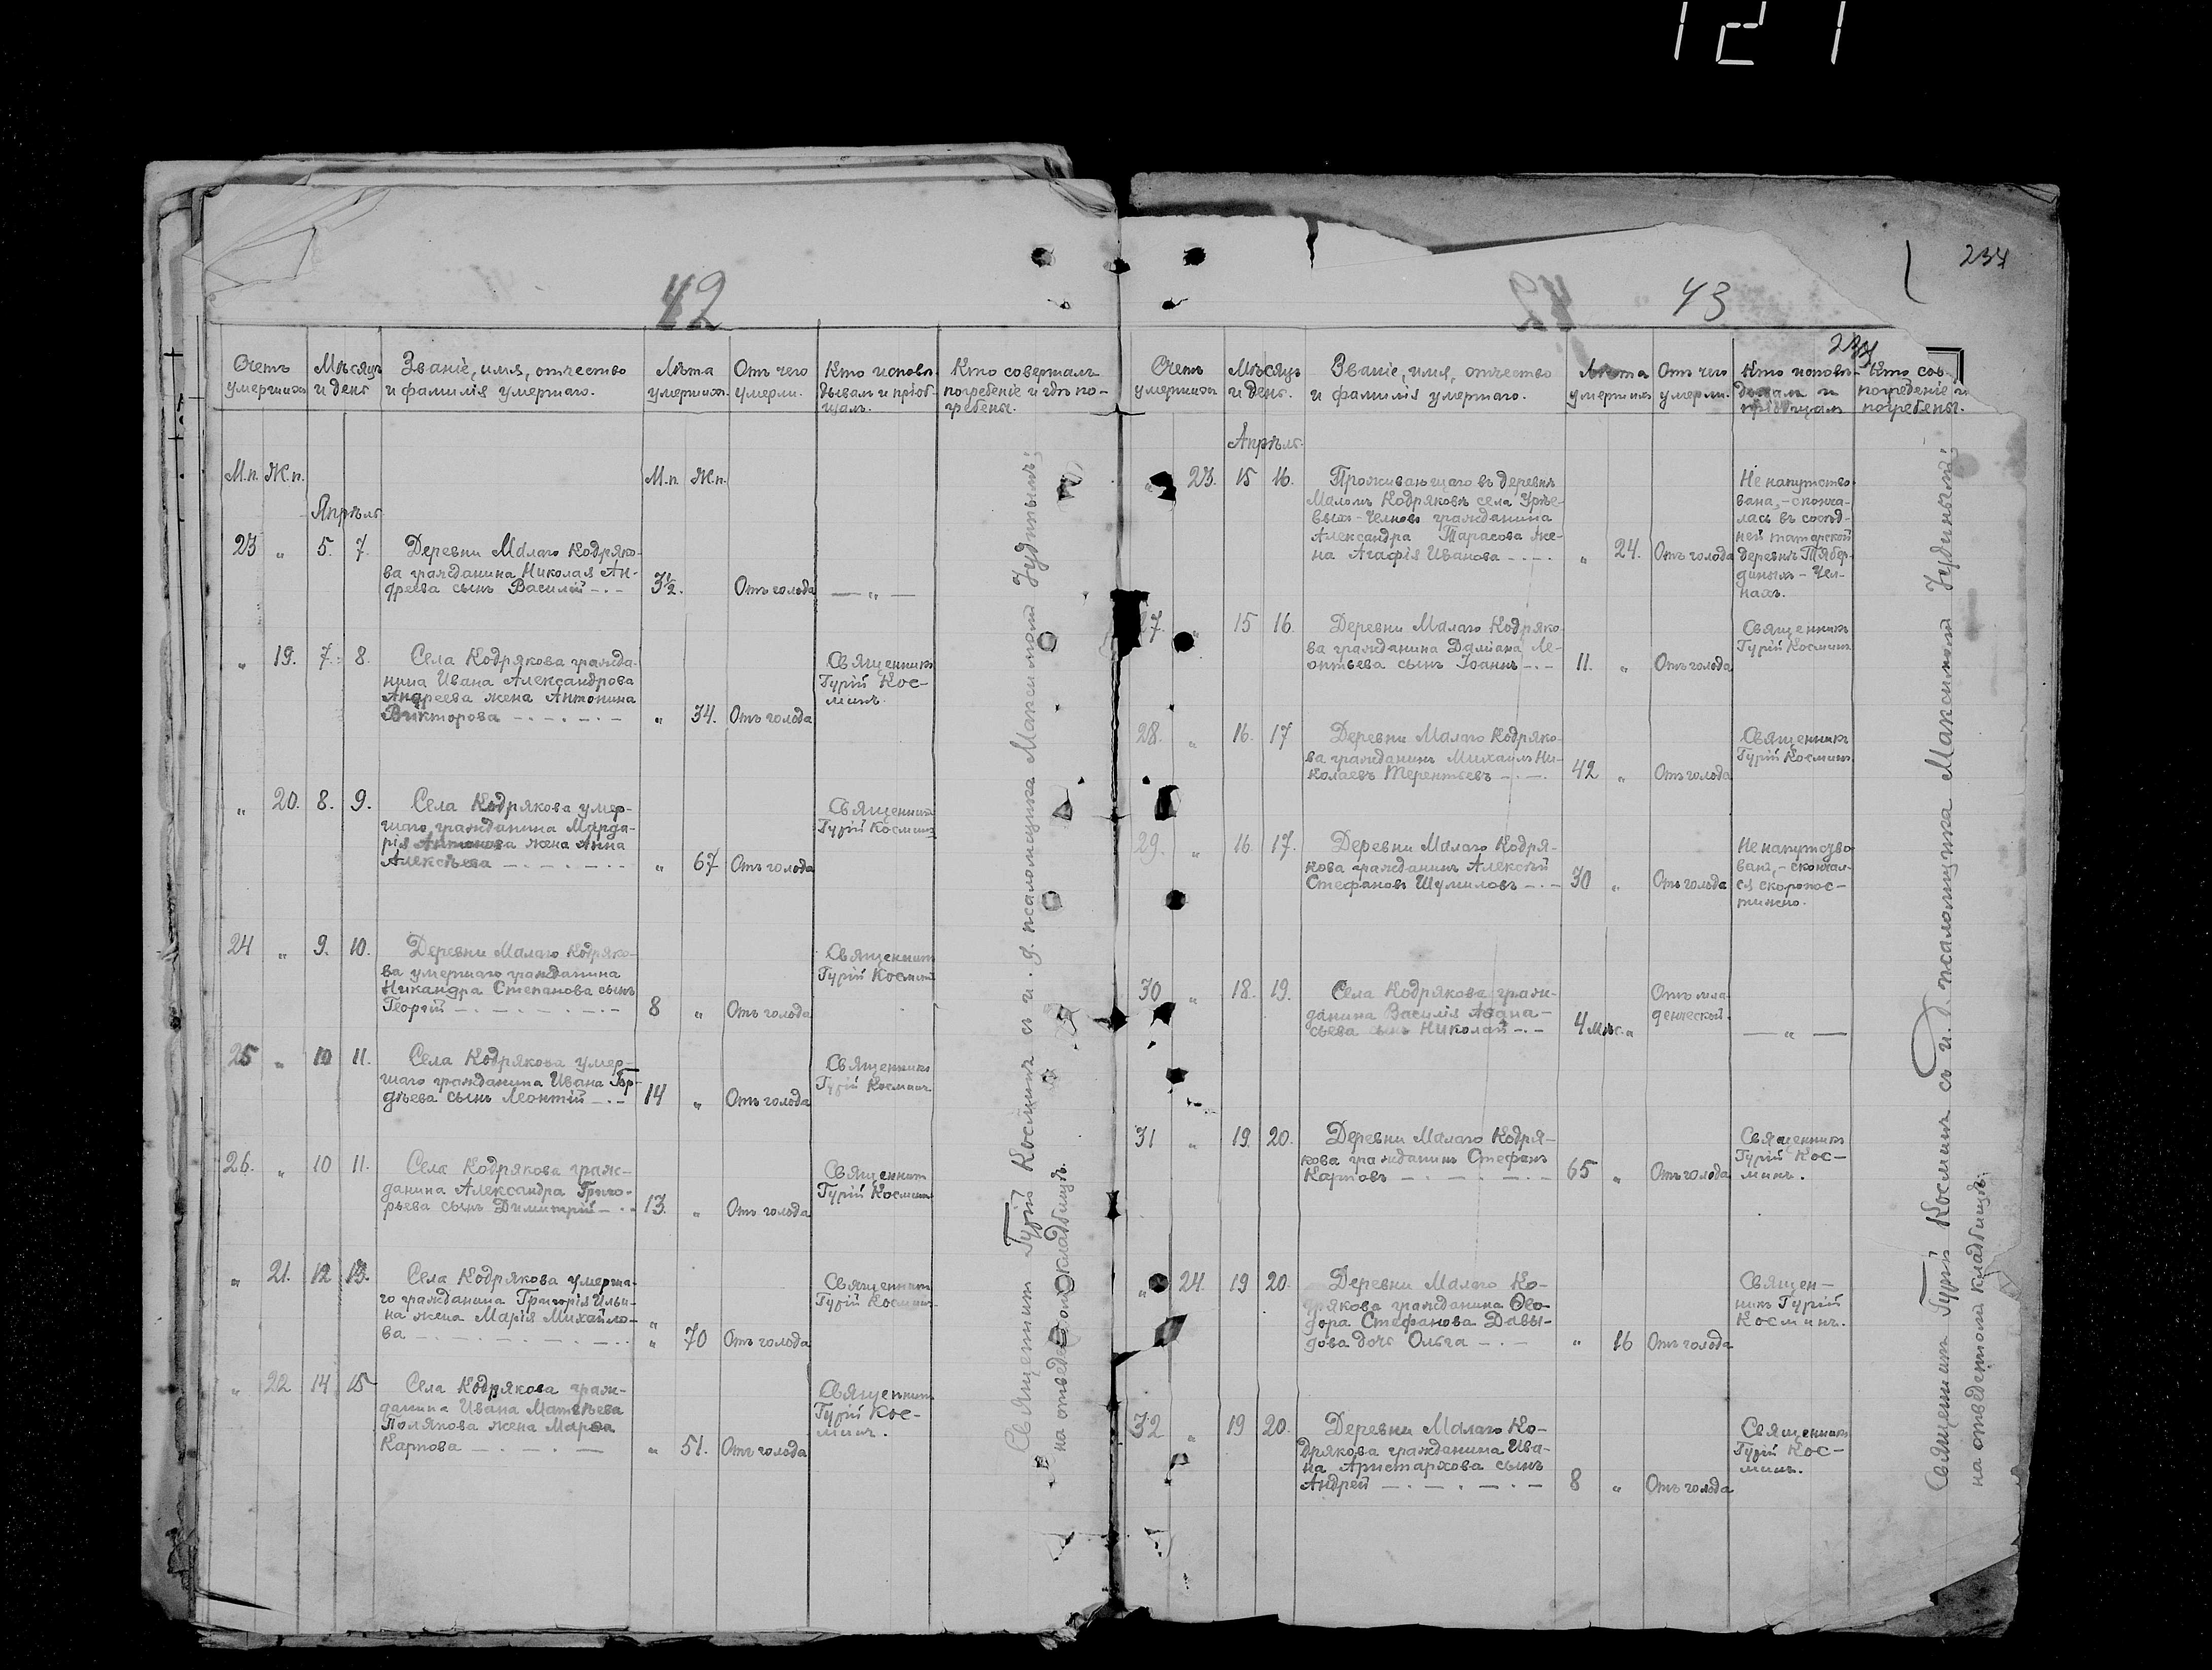 121
42
Счетъ умершихъ
Мѣсяцъ и день
Званіе, имя, отчество и фамилія умершаго.
Лѣта умершихъ.
Отъ чего умерли.
Кто исповѣдывалъ и пріобщалъ.
Кто совершалъ погребеніе и гдѣ погребены.
М.п. Ж.п.
М.п. Ж.п.
Апрѣль
23 „ 5. 7. Деревни Малаго Кодряко-
ва гражданина Николая Ан-
дреева сынъ Василій 3½. Отъ голода — „ —
„ 19. 7. 8. Села Кодрякова гражда-
нина Ивана Александрова
Андреева жена Антонина
Викторова „ 34. Отъ голода
Священникъ
Гурій Кос-
минъ.
„ 20. 8. 9. Села Кодрякова умер-
шаго гражданина Марда-
рія Антонова жена Анна
Алексѣева „ 67 Отъ голода
Священникъ
Гурій Косминъ
24 „ 9. 10. Деревни Малаго Кодряко-
ва умершаго гражданина
Никандра Степанова сынъ
Георгій 8 „ Отъ голода
Священникъ
Гурій Косминъ
25 „ 10 11. Села Кодрякова умер-
шаго гражданина Ивана Гор-
дѣева сынъ Леонтій 14 „ Отъ голода
Священникъ
Гурій Косминъ
26. „ 10 11. Села Кодрякова граж-
данина Александра Григо-
рьева сынъ Димитрій 13. „ Отъ голода
Священникъ
Гурій Косминъ
„ 21. 12 13. Села Кодрякова умерша-
го гражданина Григорія Ильи-
на жена Марія Михайло-
ва „ 70 Отъ голода
Священникъ
Гурій Косминъ
„ 22 14 15 Села Кодрякова граж-
данина Ивана Матвѣева
Полякова жена Марѳа
Карпова „ 51. Отъ голода
Священникъ
Гурій Кос-
минъ.
Священникъ Гурій Косминъ съ и. д. псаломщика Максимомъ Юдинымъ;
на отведенномъ кладбищѣ.
234
43
234
Счетъ умершихъ
Мѣсяцъ и день.
Званіе, имя, отчество и фамилія умершаго.
Лѣта умершихъ
Отъ чего умерли.
Кто исповѣдывалъ и пріобщалъ
Кто сов-
погребеніе и
погребены.
Апрѣль.
„ 23. 15 16. Проживающаго въ деревнѣ
Маломъ Кодряковѣ села Урѣе-
выхъ-Челновъ гражданина
Александра Тарасова же-
на Агафія Иванова „ 24. Отъ голода
Не напутство-
вана, - сконча-
лась въ сосѣд-
ней татарской
деревнѣ Тябер-
диныхъ - Чел-
нахъ.
27. „ 15 16. Деревни Малаго Кодряко-
ва гражданина Даміана Ле-
онтьева сынъ Іоаннъ 11. „ Отъ голода
Священникъ
Гурій Косминъ
28. „ 16. 17 Деревни Малаго Кодряко-
ва гражданинъ Михаилъ Ни-
колаевъ Терентьевъ 42 „ Отъ голода
Священникъ
Гурій Косминъ
29. „ 16. 17. Деревни Малаго Кодря-
кова гражданинъ Алексѣй
Стефановъ Шумиловъ 30 „ Отъ голода
Не напутство-
ванъ, - скончал-
ся скоропос-
тижно.
30 „ 18. 19. Села Кодрякова граж-
данина Василія Аѳана-
сьева сынъ Николай 4 мѣс. „
Отъ мла-
денческой. — „ —
31 „ 19. 20. Деревни Малаго Кодря-
кова гражданинъ Стефанъ
Карповъ 65 „ Отъ голода
Священникъ
Гурій Кос-
минъ.
„ 24. 19 20. Деревни Малаго Ко-
дрякова гражданина Ѳео-
дора Стефанова Давы-
дова дочь Ольга „ 16 Отъ голода
Священ-
никъ Гурій
Косминъ.
32 „ 19 20. Деревни Малаго Ко-
дрякова гражданина Ива-
на Аристархова сынъ
Андрей 8 „ Отъ голода
Священникъ
Гурій Кос-
минъ.
Священникъ Гурій Косминъ съ и. д. псаломщика Максимомъ Юдинымъ;
на отведенномъ кладбищѣ.